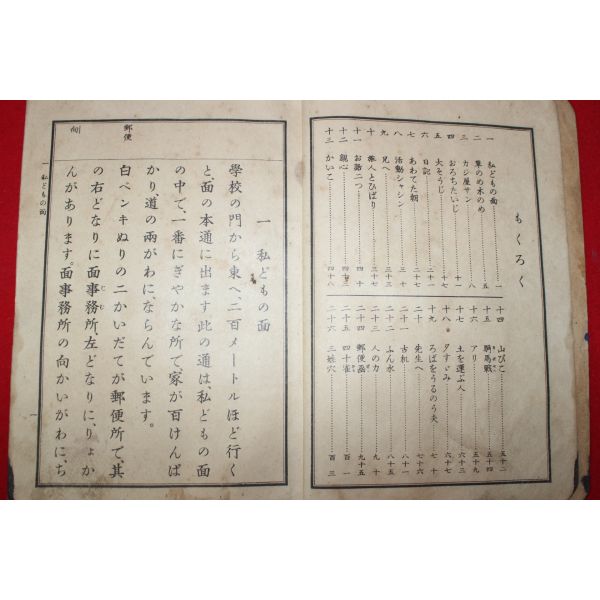 もくろく
一 私どもの面……一
二 草のめ木のめ……五
三 カジ屋サン……八
四 おろちたいじ……十一
五 大そうじ……十七
六 日記……二十一
七 あわてた朝
八 活動シャシン……三十
九 兄へ
十 旅人とひばり……三十七
十一 お話二つ……四十
十二 親心
十三 かいこ……四十八
十四 山びこ……五十二
十五 騎馬戰……五十四
十六 アリ……五十九
十七 土を運ぶ人……六十三
十八 夕すゞみ……六十七
十九 ろばをうるのう夫……七十
二十 先生へ……七十六
二十一 古机……八十一
二十二 ふん水……八十五
二十三 人の力……九十
二十四 郵便函……九十五
二十五 四十雀……百一
二十六 三姓穴……百三
一 私どもの面
學校の門から東へ、二百メートルほど行く
と、面の本通に出ます。此の通は、私どもの面
の中で、一番にぎやかな所で、家が百けんば
かり、道の兩がわに、ならんでいます。
白ペンキぬりの二かいだてが郵便所で、其
の右どなりに面事務所、左どなりに、りょか
んがあります。面事務所の向かいがわに、ち
郵便
向
一 私どもの面
一